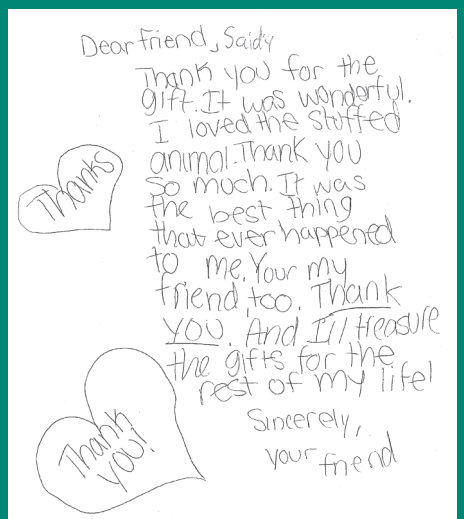 Dear friend, Saidy
Thank you for the
gift. It was wonderful.
I loved the stuffed
animal. Thank you
so much. It was
the best thing
that ever happened
to me. Your my
friend, too. Thank
you. And I'll treasure
the gifts for the
rest of my life!
Sincerely,
your friend
Thanks
Thank
you!